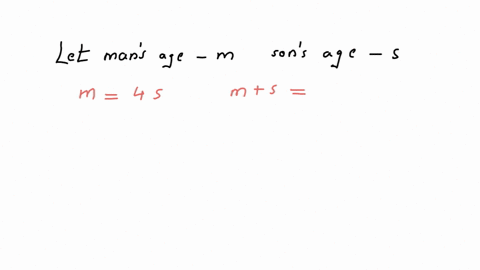 Let man's age – m son's age – s
m = 4 s m + s =